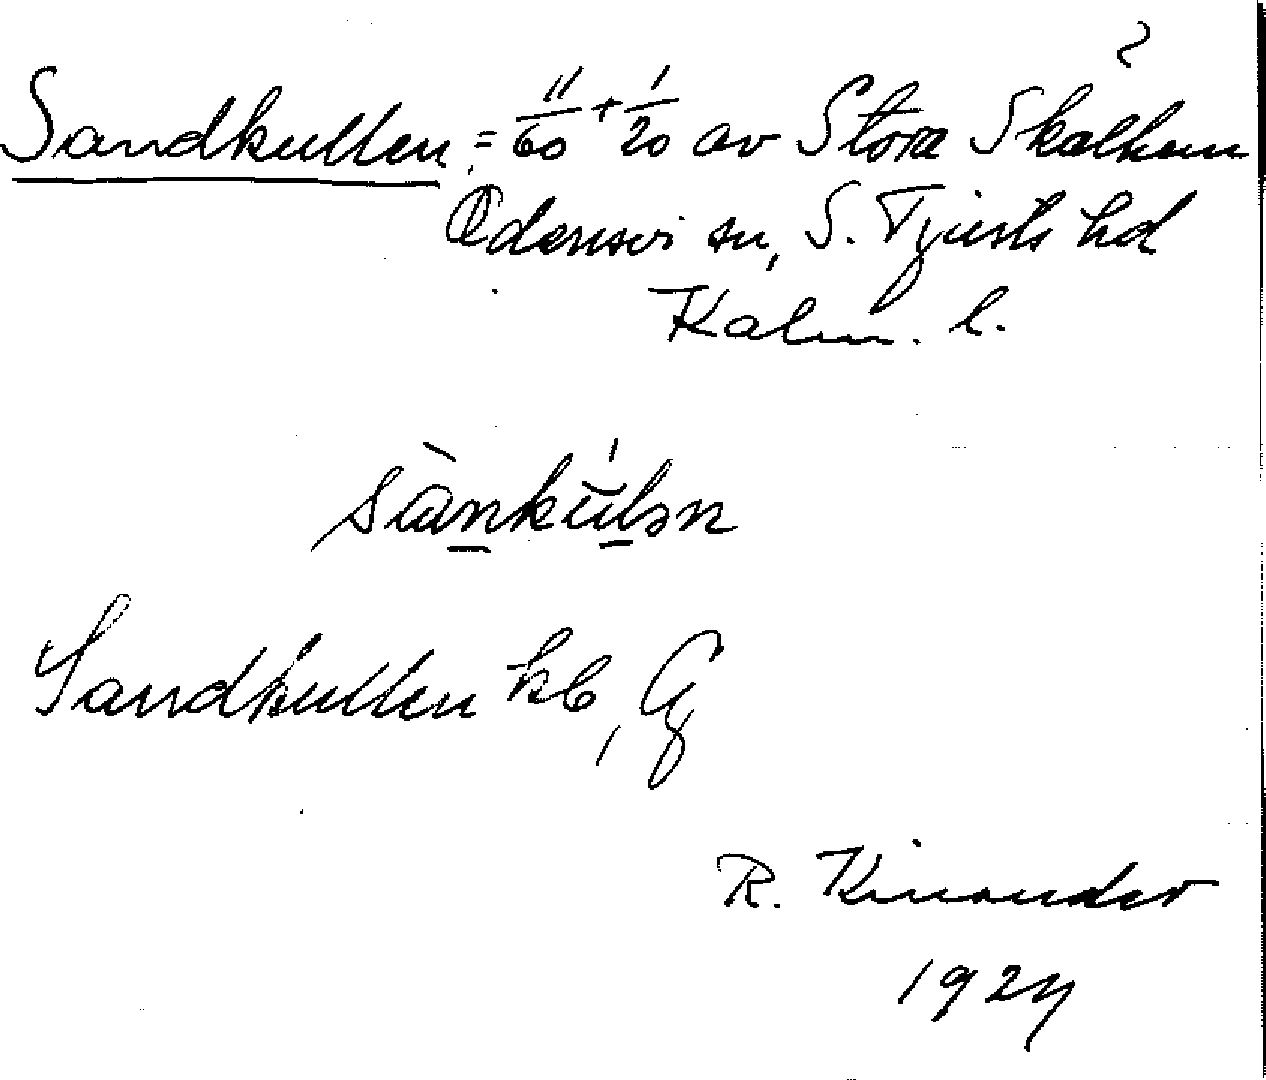 2
Sandkullen = 11/60 + 1/20 av Stora Skalhem
Odensvi sn, S. Tjusts hd
Kalm. l.
sànkúlən
Sandkullen kb, Gj
R. Kinander
1924